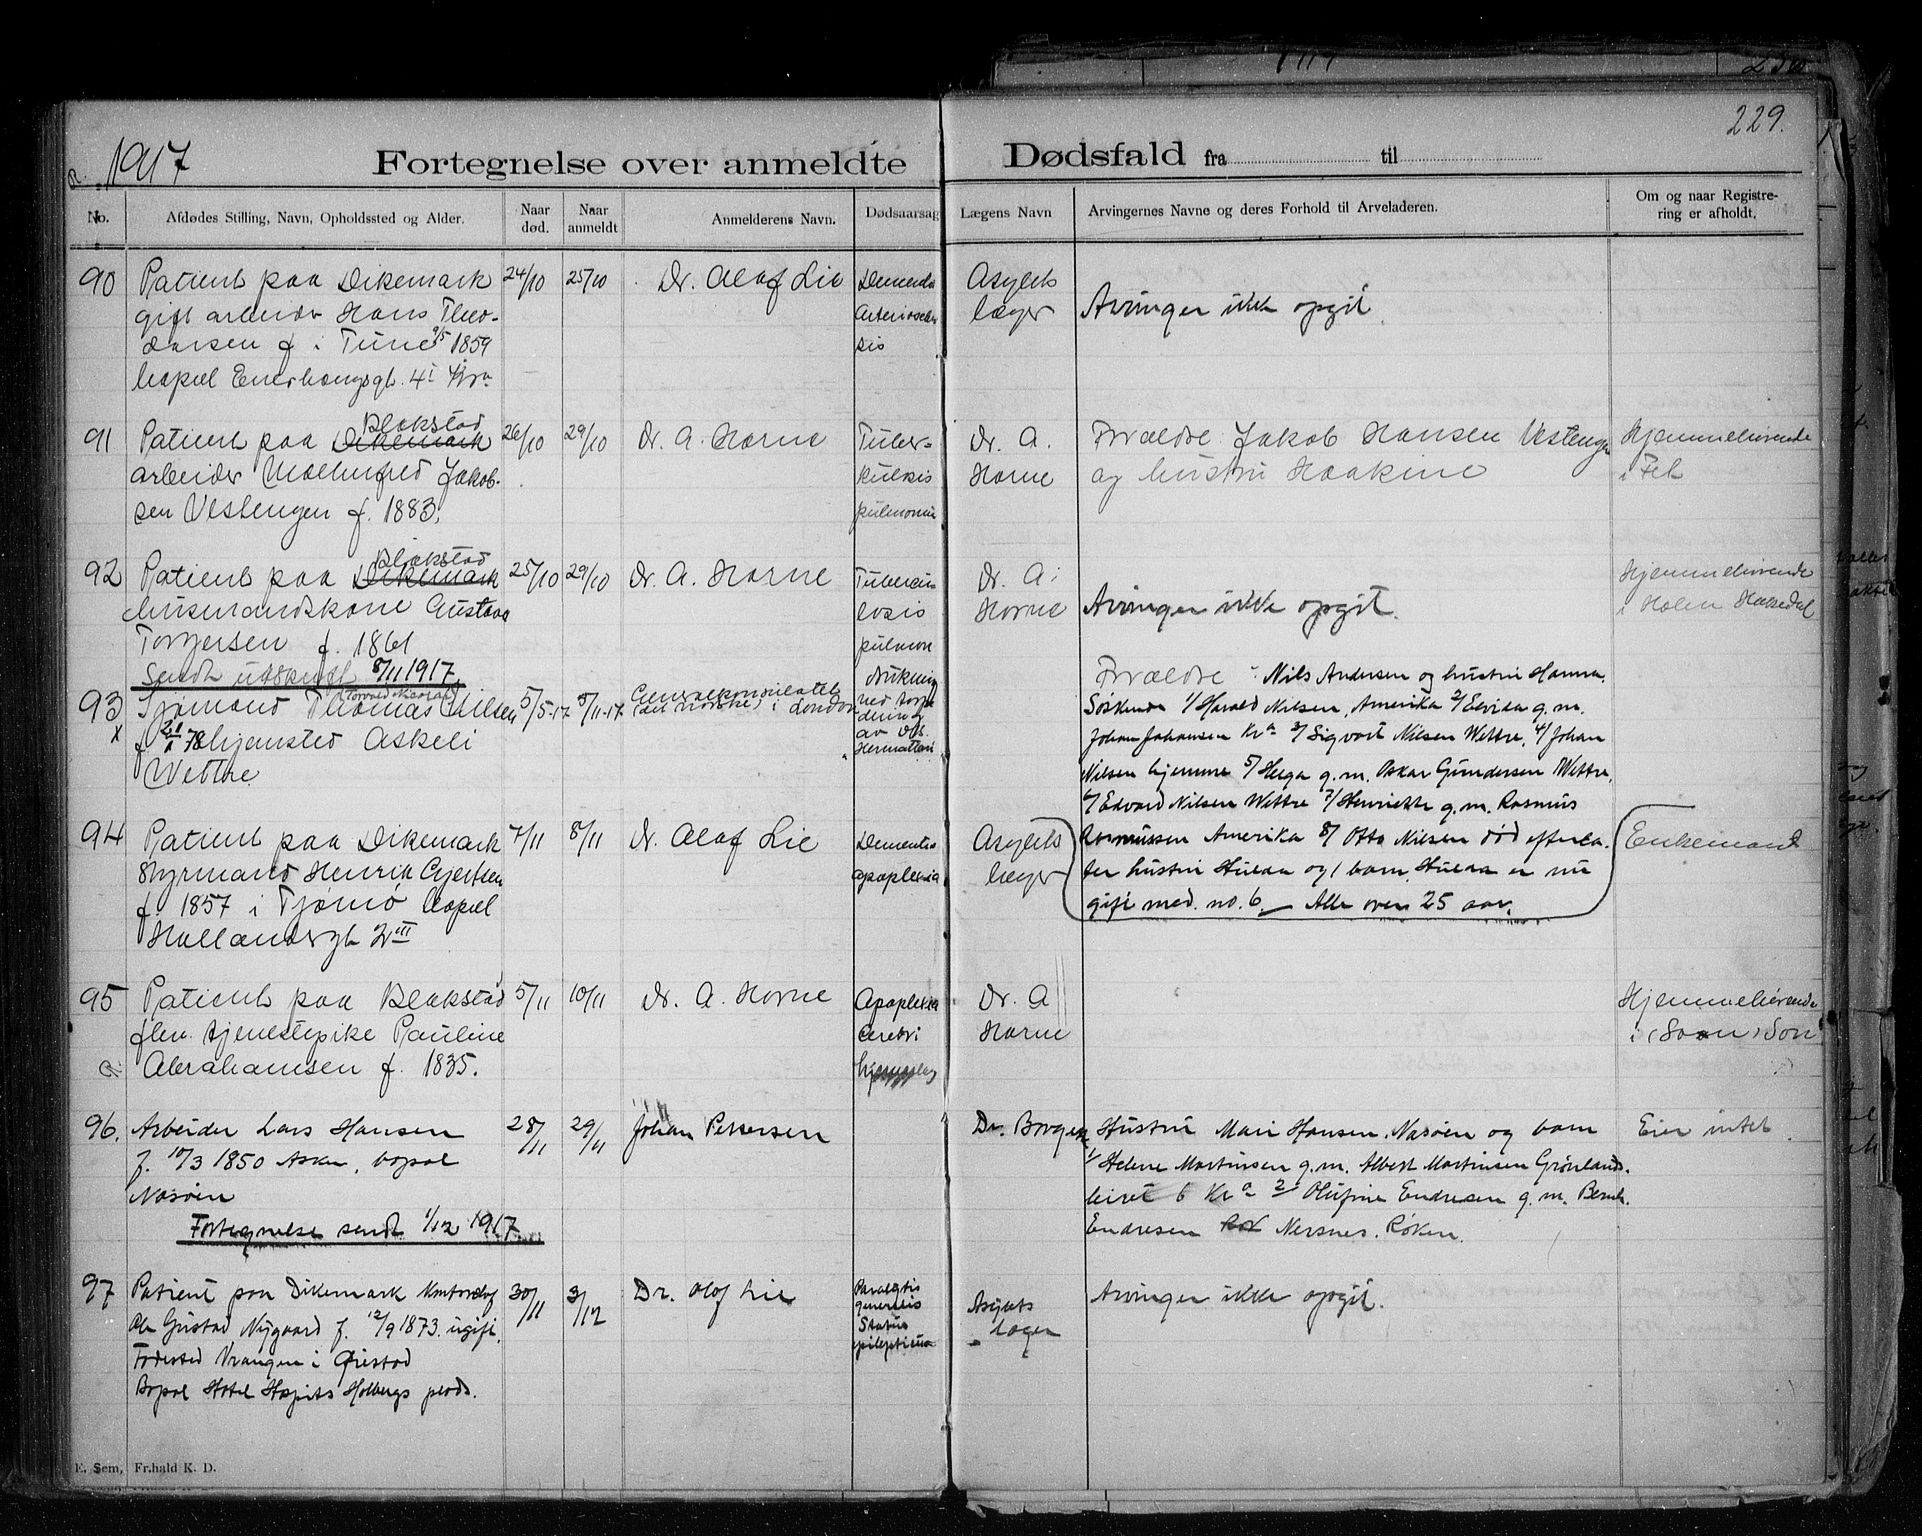 229.
1917
Fortegnelse over anmeldte Dødsfald fra til
No.
Afdødes Stilling, Navn, Opholdssted og Alder.
Naar død.
Naar anmeldt
Anmelderens Navn.
Dødsaarsag
Lægens Navn
Arvingernes Navne og deres Forhold til Arveladeren.
Om og naar Registre-
ring er afholdt.
90
Patient paa Dikemark
gift arbeider Hans Theo-
dorsen f i Tune 9/5 1859
bopæl Enerhaugsgt. 4 I Kra
24/10
25/10
Dr. Olaf Lie
Dementia
Arterioscle
sis
Asylets
læger
Arvinger ikke opgit
91
Blakstad
Patient paa Dikemark
arbeider Jakob-
sen Vestengen f. 1883.
26/10
29/10
Dr. A. Horne
Tuber-
kulosis
pulmonum
Dr. A.
Horne
Forældre: Jakob Hansen Vestengen
og hustru Haakine
Hjemmehørende
i Fet
92
Blakstad
Patient paa Dikemark
husmandskone Gustava
Torgersen f. 1861
Sendt utskrift 8/11 1917
25/10
29/10
Dr. A. Horne
Tubercu
losis
pulmon
Dr. A.
Horne
Arvinger ikke opgit.
Hjemmehørende
i Holen Hakedal
93
x
Sjømand Thomas Nilsen
f 78 hjemsted Askeli
Vettre
5/5-17
5/11-17
Generalkonsulatet
(det norske) i London
Drukning
ved torpe
dering
av D/S.
Forældre: Nils Andersen og hustru Hanna.
Søskende 1/ Harald Nilsen, Amerika 2/ Elvida g.m.
Johan Johansen Kra 3/ Sigvart Nilsen Vettre, 4/ Johan
Nilsen hjemme 5/ Helga g.m. Oskar Gundersen Vettre,
6/ Edvard Nilsen Vettre 7/ Henrikke g.m. Rasmus
Rasmussen Amerika 8/ Otto Nilsen død efterla-
ter hustru Hulda og 1 barn. Hulda er nu
gift med no. 6. — Alle over 25 aar.
94
Patient paa Dikemark
Styrmand Henrik Gjertsen
f. 1857 i Tjømø bopæl
Hollendergt 2 III
7/11
8/11
Dr. Olaf Lie
Dementia
apoplexia
Asylets
læger
Enkemand
95
Patient paa Blakstad
flv. tjenestepike Pauline
Abrahamsen f. 1835.
5/11
10/11
Dr. A. Horne
Apoplexia
cerebri
Dr. A
Horne
Hjemmehørende
i (Soon) Son
96.
Arbeider Lars Hansen
f. 10/3 1850 Asker, bopæl
Nesøen
Fortegnelse sendt 1/12 1917.
28/11
29/11
Johan Pettersen
Dr. Borgen
Hustru Mari Hansen, Nesøen og barn
1/ Helene Martinsen g.m. Albert Martinsen Grønlands-
leiret 6 Kra 2/ Olufine Endresen g.m. Bernh.
Endresen Nersnes. Røken.
Eier intet
97
Patient paa Dikemark
Ole Gustav Nygaard f. 12/9 1873. ugift,
Fødested Vrangen i Øiestad
Bopæl Hotel Hospits Holbergs plads.
30/11
3/12
Dr. Olaf Lie
Paralysis
generalis
Status
epilepticus
Asylets
Læger
Arvinger ikke opgit.
E. Sem, Fr.hald K. D.